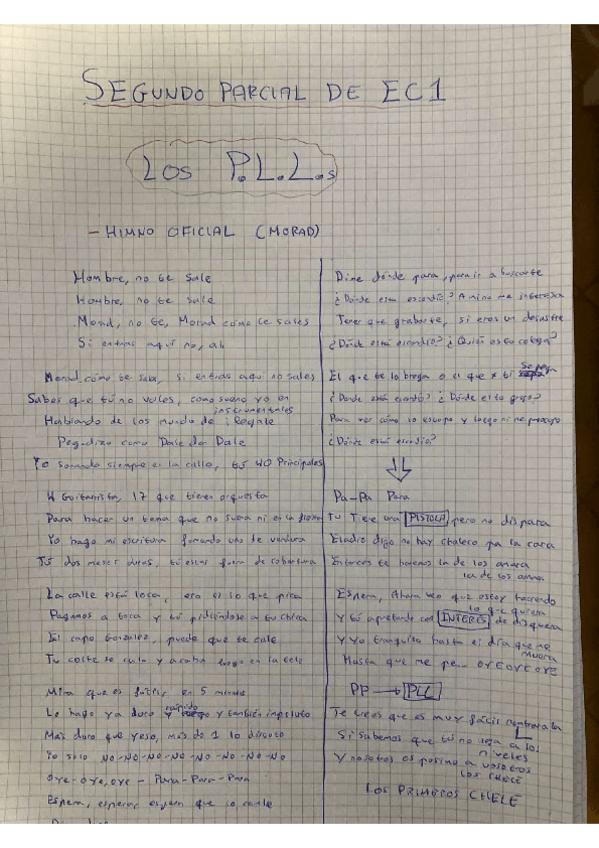 SEGUNDO PARCIAL DE EC1
LOS P.L.L.s
- HIMNO OFICIAL (MORAD)
Hombre, no te sale
Hombre, no te sale
Morad, no te, Morad cómo te sales
Si entras aquí no, ah
Morad cómo te sale, si entras aquí no sales
Sabes que tú no vales, como sueno yo en
instrumentales
Hablando de los mundo de ilegale
Pegadizo como Dale Don Dale
Yo sonando siempre en la calle, tú 40 Principales
4 Guitarrista, 17 que tienen orquesta
Para hacer un tema que no suena ni en la fiesta
Yo hago mi escritura fumando uno de verdura
Tú dos meses duras, tú estás fuera de cobertura
La calle está loca, era es lo que pica
Pagamos a toca y tú pidiéndose a tu chica
El capo González, puede que te cale
Tu coste se cula y acaba luego en la tele
Mira que es fácil, en 5 minutos
Lo hago ya duro y rápido y también impoluto
Más duro que yeso, más de 1 lo discuto
Yo solo NO-NO-NO-NO-NO-NO-NO-NO
Oye-oye, oye - Para-Para-Para
Espera, espera, espera que lo cante
Dime dónde para, para ir a buscarte
¿Dónde está escondío? A mí no me interesa
Tener que grabarte, si eres un desastre
¿Dónde está escondío? ¿Quién es tu colega?
El que te lo brega o el que x ti se pega
¿Dónde está escondío? ¿Dónde está tu grupo?
Para ver cómo lo escupo y luego ni me preocupo
¿Dónde está escondío?
Pa-Pa Para
Tu tiene una PISTOLA pero no dispara
El adre digo no hay chaleco pa la cara
Entonces te haremos la de los
la de los
Espera, Ahora veo que estoy haciendo
lo que quiera
Y tú apretando con INTERÉS de disquera
Y yo tranquilo hasta el día que me
muera
Hasta que me pe... OYEOYEOYE
PP → PLL
Te crees que es muy fácil
Si sabemos que tú no llega a los
niveles
Y nosotros os
LOS CHELE
LOS PRIMEROS CHELE